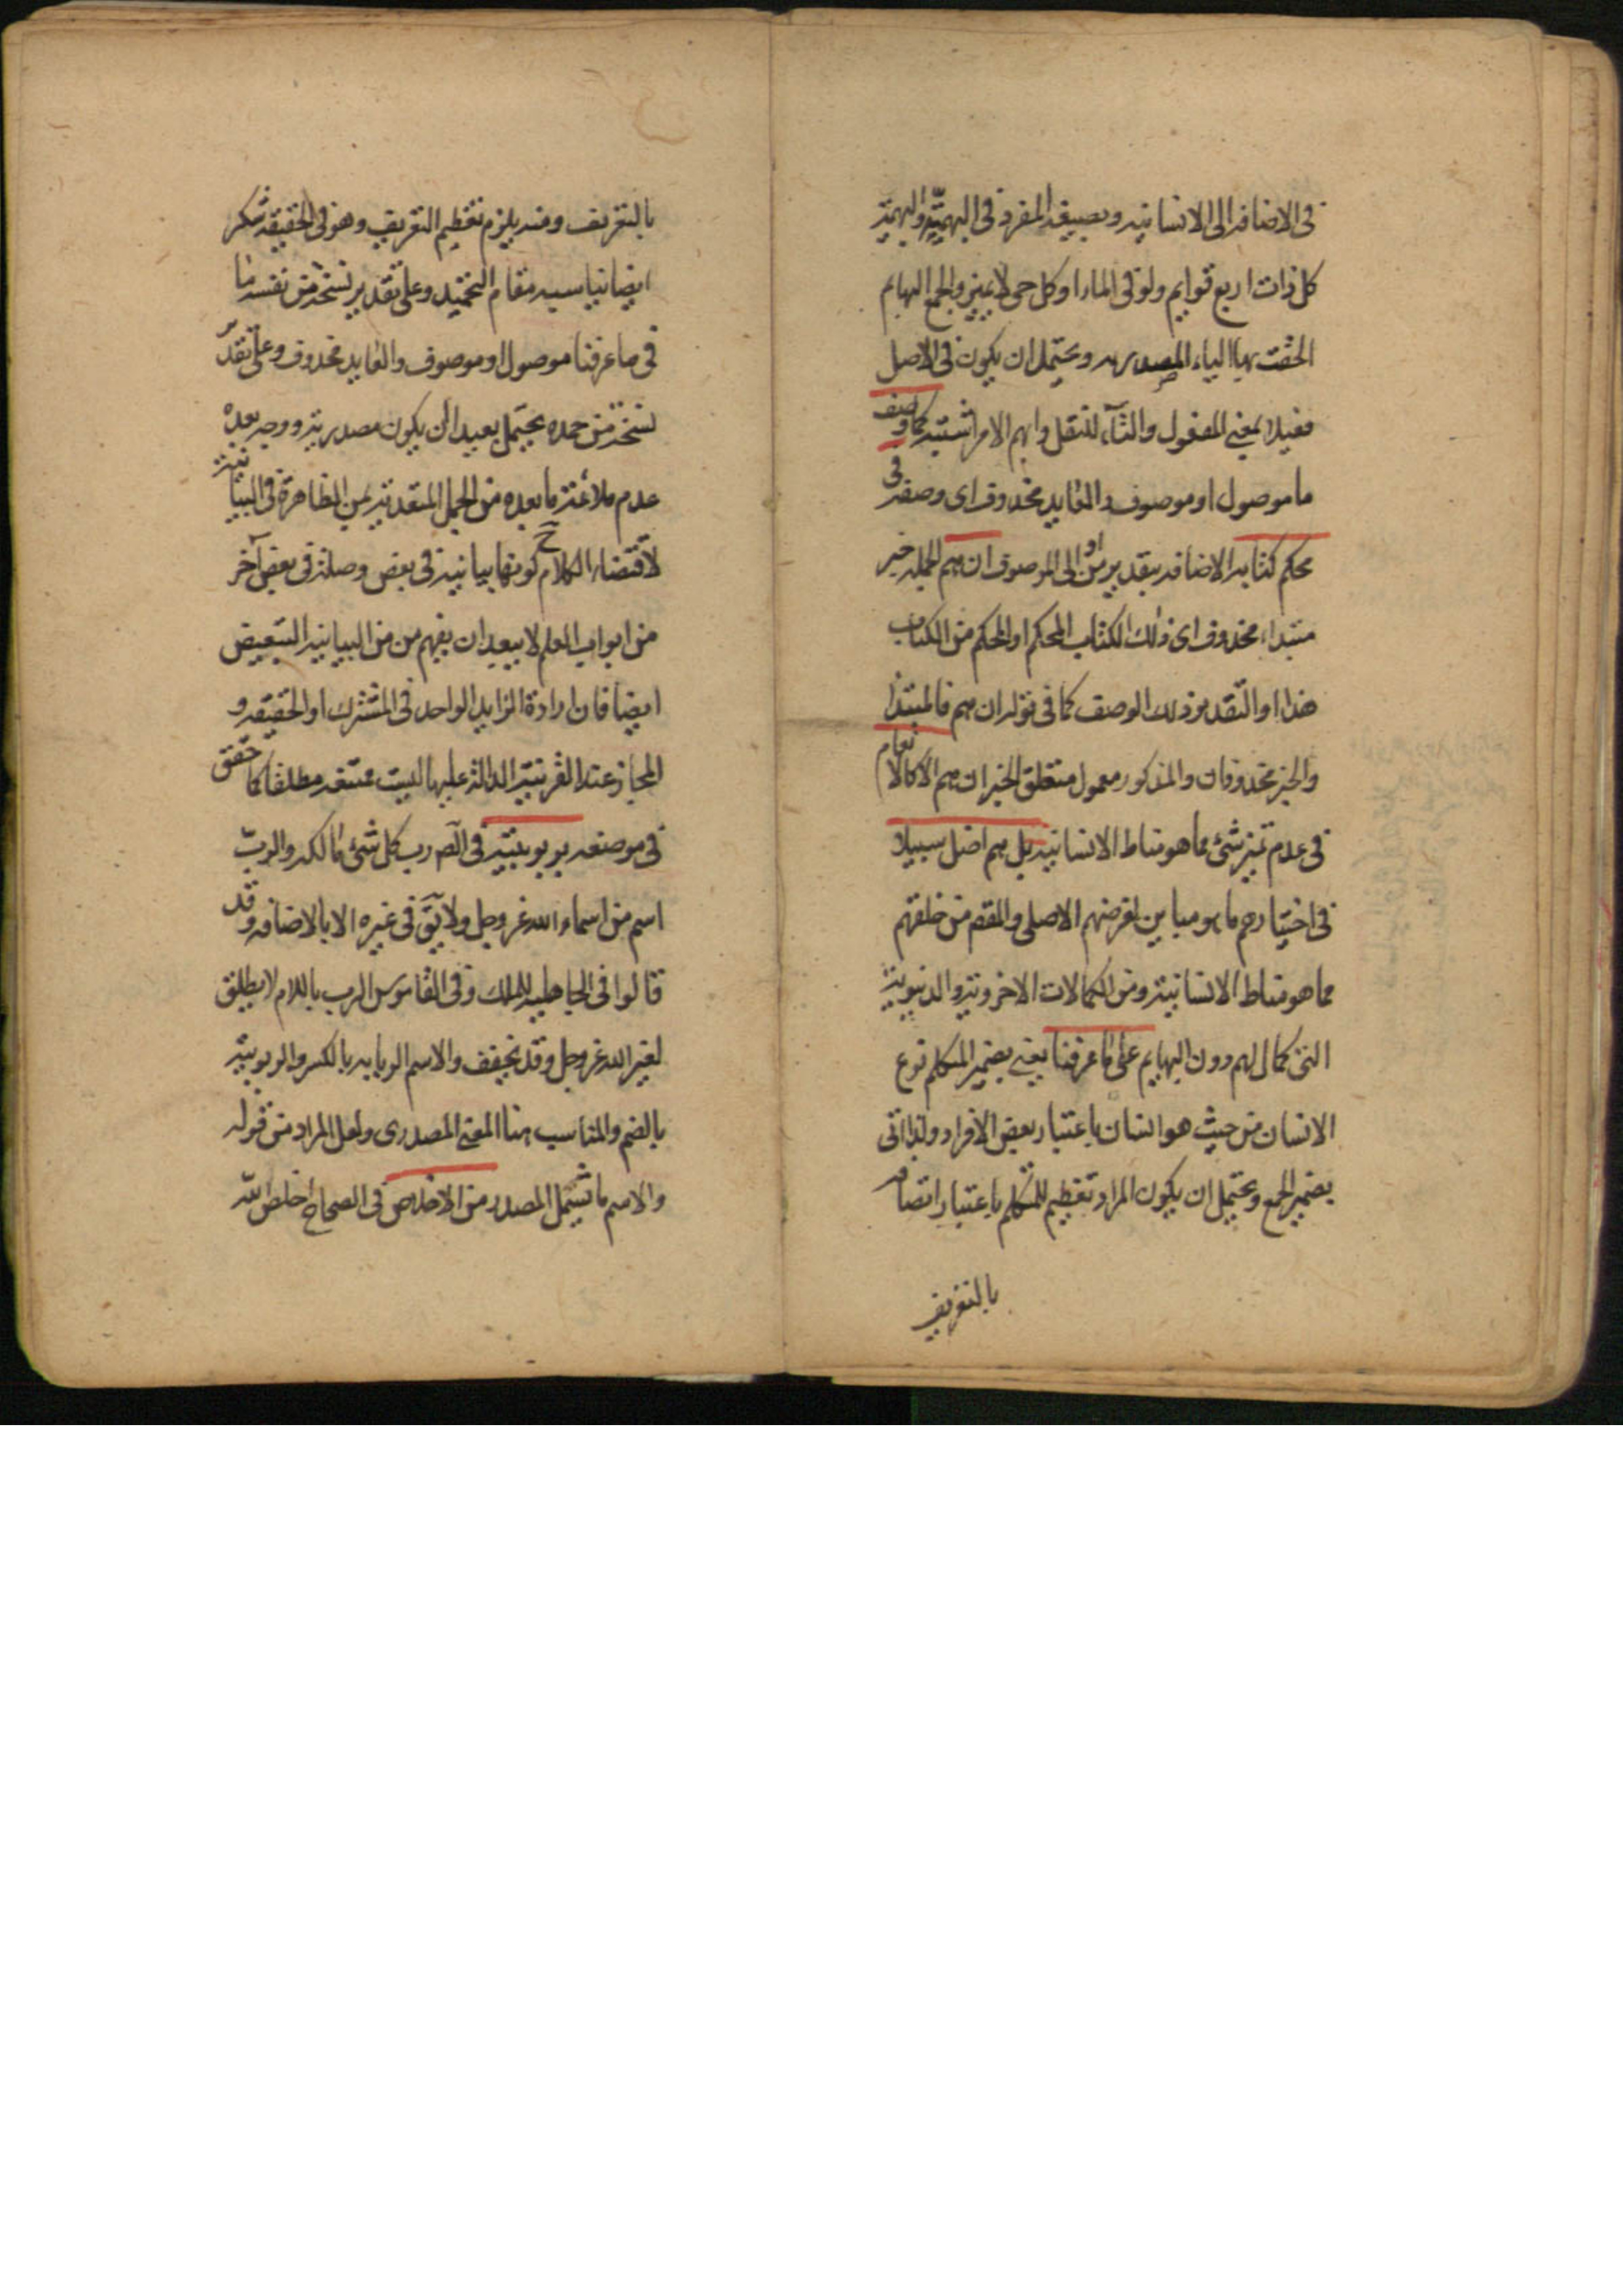 في الاضافة الى الانسانية وبصيغة المفرد في البهيمية والبهيمة
كل ذات اربع قوايم ولو في الماء او كل حي لا يميز والجمع البهايم
الحقت بها الياء المصدرية ويحتمل ان يكون في الاصل
فعيلا بمعنى المفعول والتاء للنقل وابهم الامر اشتبه كما وصف
ما موصول او موصوف والعايد محذوف اى وصفه في
محكم كتابه الاضافة بتقدير من او الى الموصوف ان هم الجملة خبر
مبتداء محذوف اى ذلك الكتاب المحكم او المحكم من الكتاب
هذا او التقدير ذلك الوصف كما في قوله ان هم فالمبتدا
والخبر محذوفان والمذكور معمول متعلق الخبر ان هم الا كالانعام
في عدم تميز شئ مما هو مناط الانسانية بل هم اضل سبيلا
في اختيارهم ما هو مباين لغرضهم الاصلى والمقصم من خلقهم
مما هو مناط الانسانية ومن الكمالات الاخروية والدنيوية
التى كمال لهم دون البهايم على ما عرفنا يعني بضمير المتكلم نوع
الانسان من حيث هو انسان باعتبار بعض الافراد ولذا اتى
بضمير الجمع ويحتمل ان يكون المراد تعظيم للمتكلم باعتبار اتصافه
بالتعريف
بالتعريف ومنه يلزم تعظيم التعريف وهو في الحقيقة شكر
ايضا يناسبه مقام التحميد وعلى تقدير نسخة من نفسه ما
في ما عرفنا موصول او موصوف والعايد محذوف وعلى تقدير
نسخة من حمده يحتمل بعيدا ان يكون مصدرية ووجه بعده
عدم ملائمة ما بعده من الجمل المتعدية بمن الظاهرة في البيانية
لاقتضاء الكلام ح كونها بيانية في بعض وصلة في بعض آخر
من ابواب العلم لا يبعد ان يفهم من من البيانية التبعيض
ايضا فان ارادة الزايد الواحد في المشترك او الحقيقة و
المجاز عند القرينة الدالة عليها ليست ممتنعة مطلقا كما حقق
في موضعه بربوبيته في الصَ رب كل شئ مالكه والرب
اسم من اسماء الله عز وجل ولا يقَ في غيره الا بالاضافة وقد
قالوا في الجاهلية للملك وفي القاموس الرب باللام لا يطلق
لغير الله عز وجل وقد يخفف والاسم الربابة بالكسر والربوبية
بالضم والمناسب هنا المعنى المصدرى ولعل المراد من قوله
والاسم ما يشمل المصدر من الاخلاص في الصحاح اخلص لله